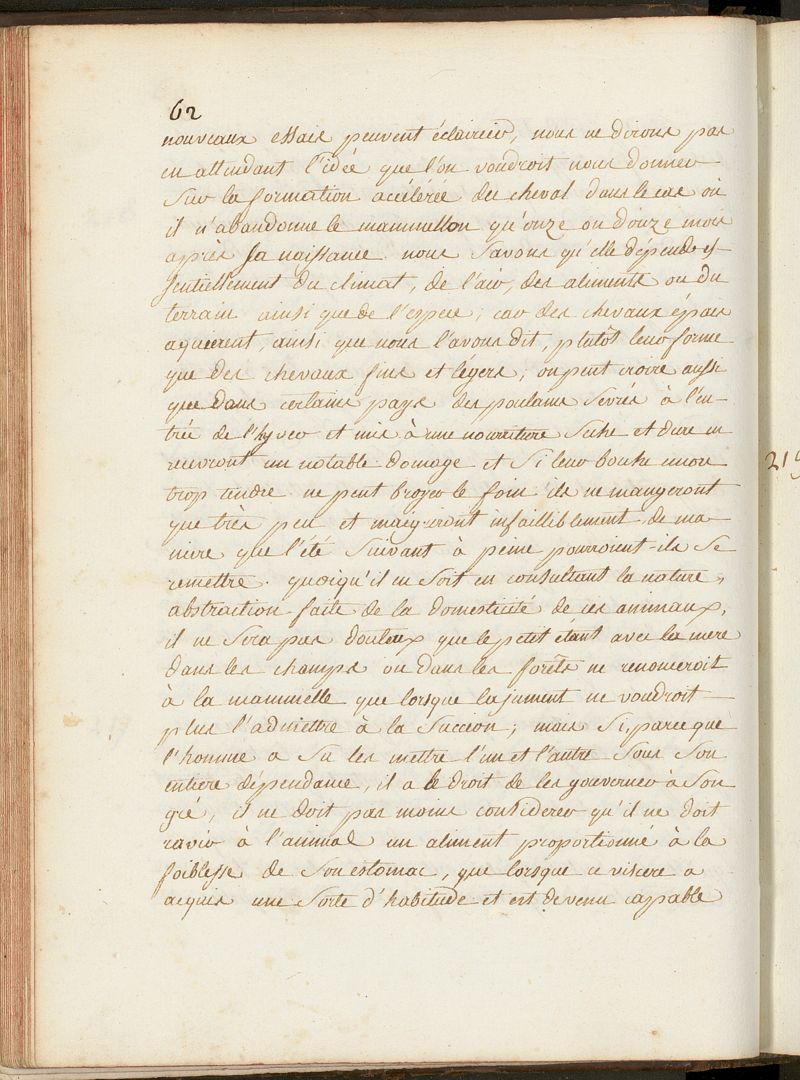 62
nouveaux essais peuvent éclaircir, nous ne dirons pas
en attendant l'idée que l'on voudroit nous donner
sur la formation accélérée du cheval dans le cas où
il n'abandonne le mammellon qu'onze ou douze mois
après sa naissance. nous savons qu'elle dépend es-
sentiellement du climat, de l'air, des aliments ou du
terrain ainsi que de l'espece; car des chevaux épais
aquerent, ainsi que nous l'avons dit, plutôt leur forme
que des chevaux fins et légers; on peut croire aussi
que dans certains pays des poulains sevrés à l'en-
trée de l'hyver et mis à une nourriture seche et dure en
recevront un notable domage et si leur bouche encore
trop tendre ne peut broyer le foin ils ne mangeront
que très peu et maigriront infailliblement de ma-
niere que l'été suivant à peine pourroient-ils se
remettre. quoiqu'il en soit en consultant la nature,
abstraction faite de la domesticité de ces animaux,
il ne sera pas douteux que le petit étant avec la mere
dans les champs ou dans les forêts ne renonceroit
à la mammelle que lorsque la jument ne voudroit
plus l'admettre à la succion; mais si, parce que
l'homme a su les mettre l'un et l'autre sous son
entiere dépendance, il a le droit de les gouverner à son
gré, il ne doit pas moins considerer qu'il ne doit
ravir à l'animal un aliment proportionné à la
foiblesse de son estomac, que lorsque ce viscere a
acquis une sorte d'habitude et est devenu capable
219